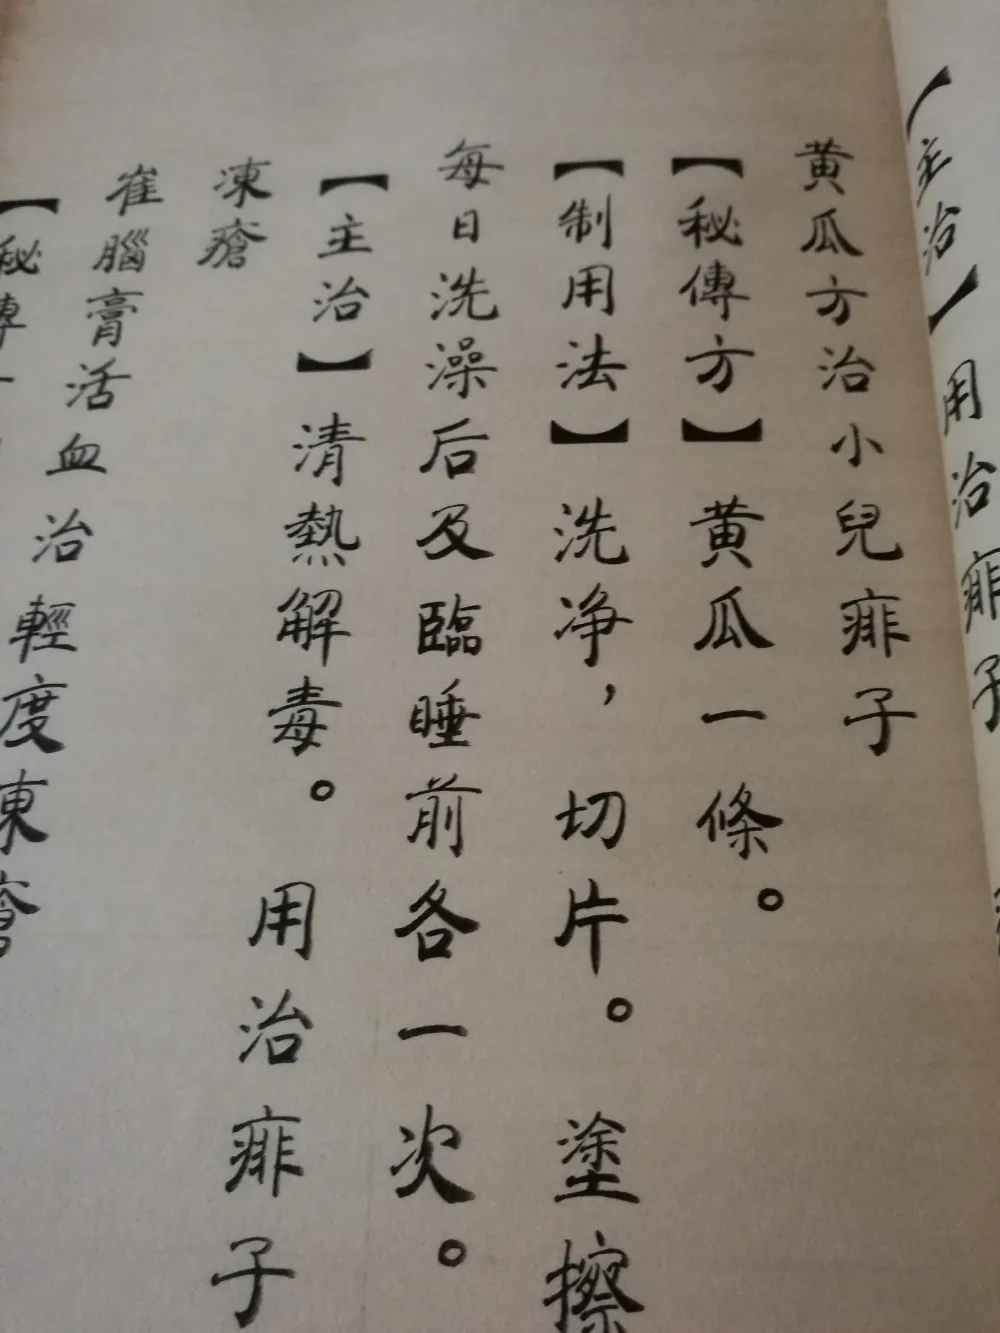 【主治】用治痱子
黄瓜方治小兒痱子
【秘傳方】黄瓜一條。
【制用法】洗净，切片。塗擦
每日洗澡后及臨睡前各一次。
【主治】清熱解毒。用治痱子
凍瘡
雀腦膏活血治輕度凍瘡
【秘傳